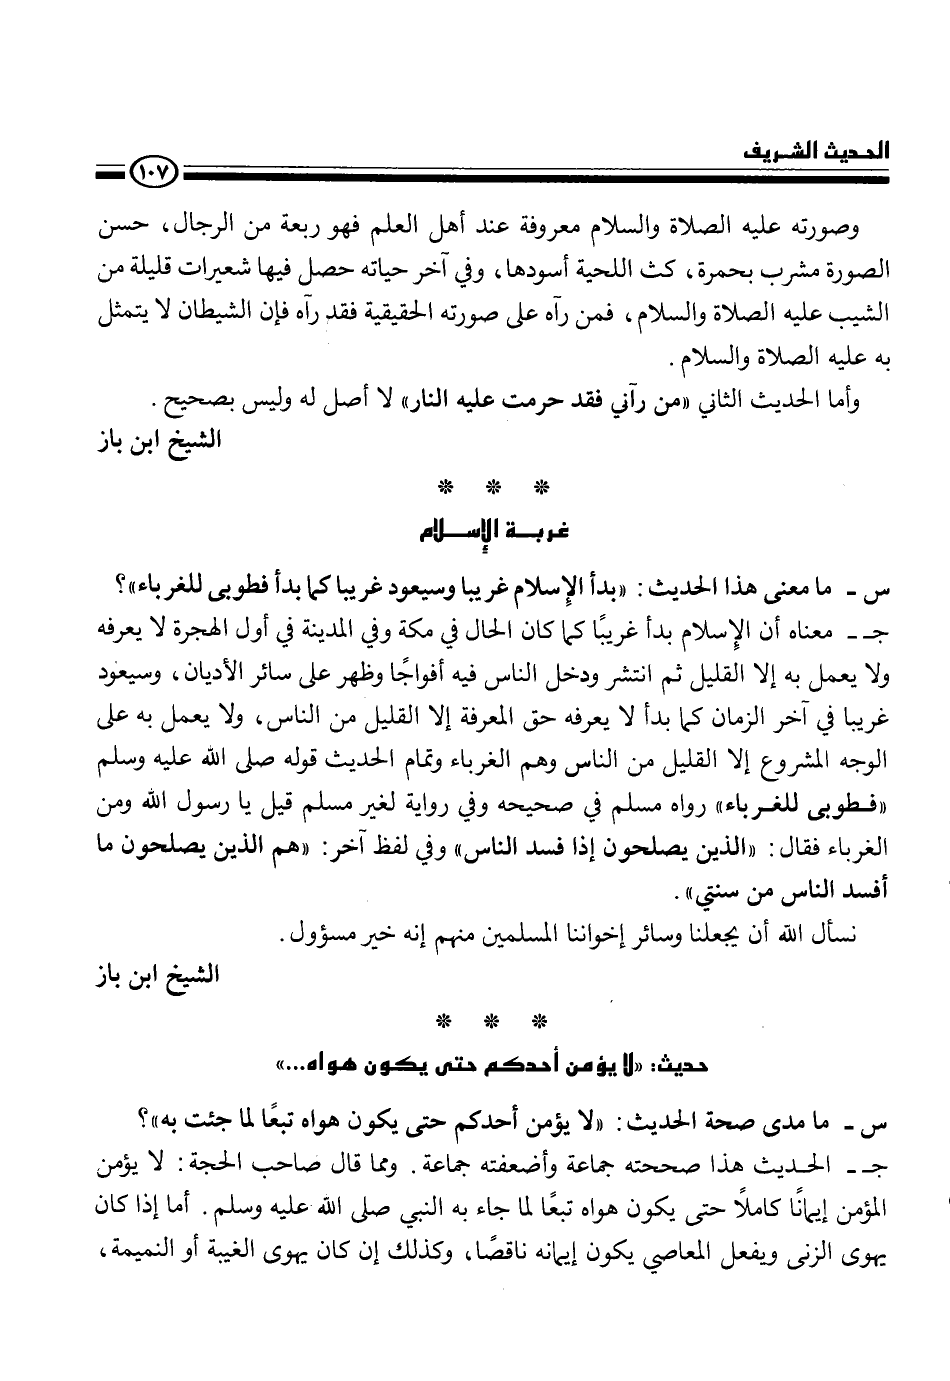 الحديث الشريف
١٠٧
وصورته عليه الصلاة والسلام معروفة عند أهل العلم فهو ربعة من الرجال، حسن
الصورة مشرب بحمرة، كث اللحية أسودها، وفي آخر حياته حصل فيها شعيرات قليلة من
الشيب عليه الصلاة والسلام، فمن رآه على صورته الحقيقية فقد رآه فإن الشيطان لا يتمثل
به عليه الصلاة والسلام.
وأما الحديث الثاني «من رآني فقد حرمت عليه النار» لا أصل له وليس بصحيح.
الشيخ ابن باز
* * *
غربة الإسلام
س ـ ما معنى هذا الحديث: «بدأ الإسلام غريبا وسيعود غريبا كما بدأ فطوبى للغرباء»؟
جـ ـ معناه أن الإسلام بدأ غريبًا كما كان الحال في مكة وفي المدينة في أول الهجرة لا يعرفه
ولا يعمل به إلا القليل ثم انتشر ودخل الناس فيه أفواجًا وظهر على سائر الأديان، وسيعود
غريبا في آخر الزمان كما بدأ لا يعرفه حق المعرفة إلا القليل من الناس، ولا يعمل به على
الوجه المشروع إلا القليل من الناس وهم الغرباء وتمام الحديث قوله صلى الله عليه وسلم
«فطوبى للغرباء» رواه مسلم في صحيحه وفي رواية لغير مسلم قيل يا رسول الله ومن
الغرباء فقال: «الذين يصلحون إذا فسد الناس» وفي لفظ آخر: «هم الذين يصلحون ما
أفسد الناس من سنتي».
نسأل الله أن يجعلنا وسائر إخواننا المسلمين منهم إنه خير مسؤول.
الشيخ ابن باز
* * *
حديث: «لا يؤمن أحدكم حتى يكون هواه...»
س ـ ما مدى صحة الحديث: «لا يؤمن أحدكم حتى يكون هواه تبعًا لما جئت به»؟
جـ ـ الحديث هذا صححته جماعة وأضعفته جماعة. ومما قال صاحب الحجة: لا يؤمن
المؤمن إيمانًا كاملًا حتى يكون هواه تبعًا لما جاء به النبي صلى الله عليه وسلم. أما إذا كان
يهوى الزنى ويفعل المعاصي يكون إيمانه ناقصًا، وكذلك إن كان يهوى الغيبة أو النميمة،